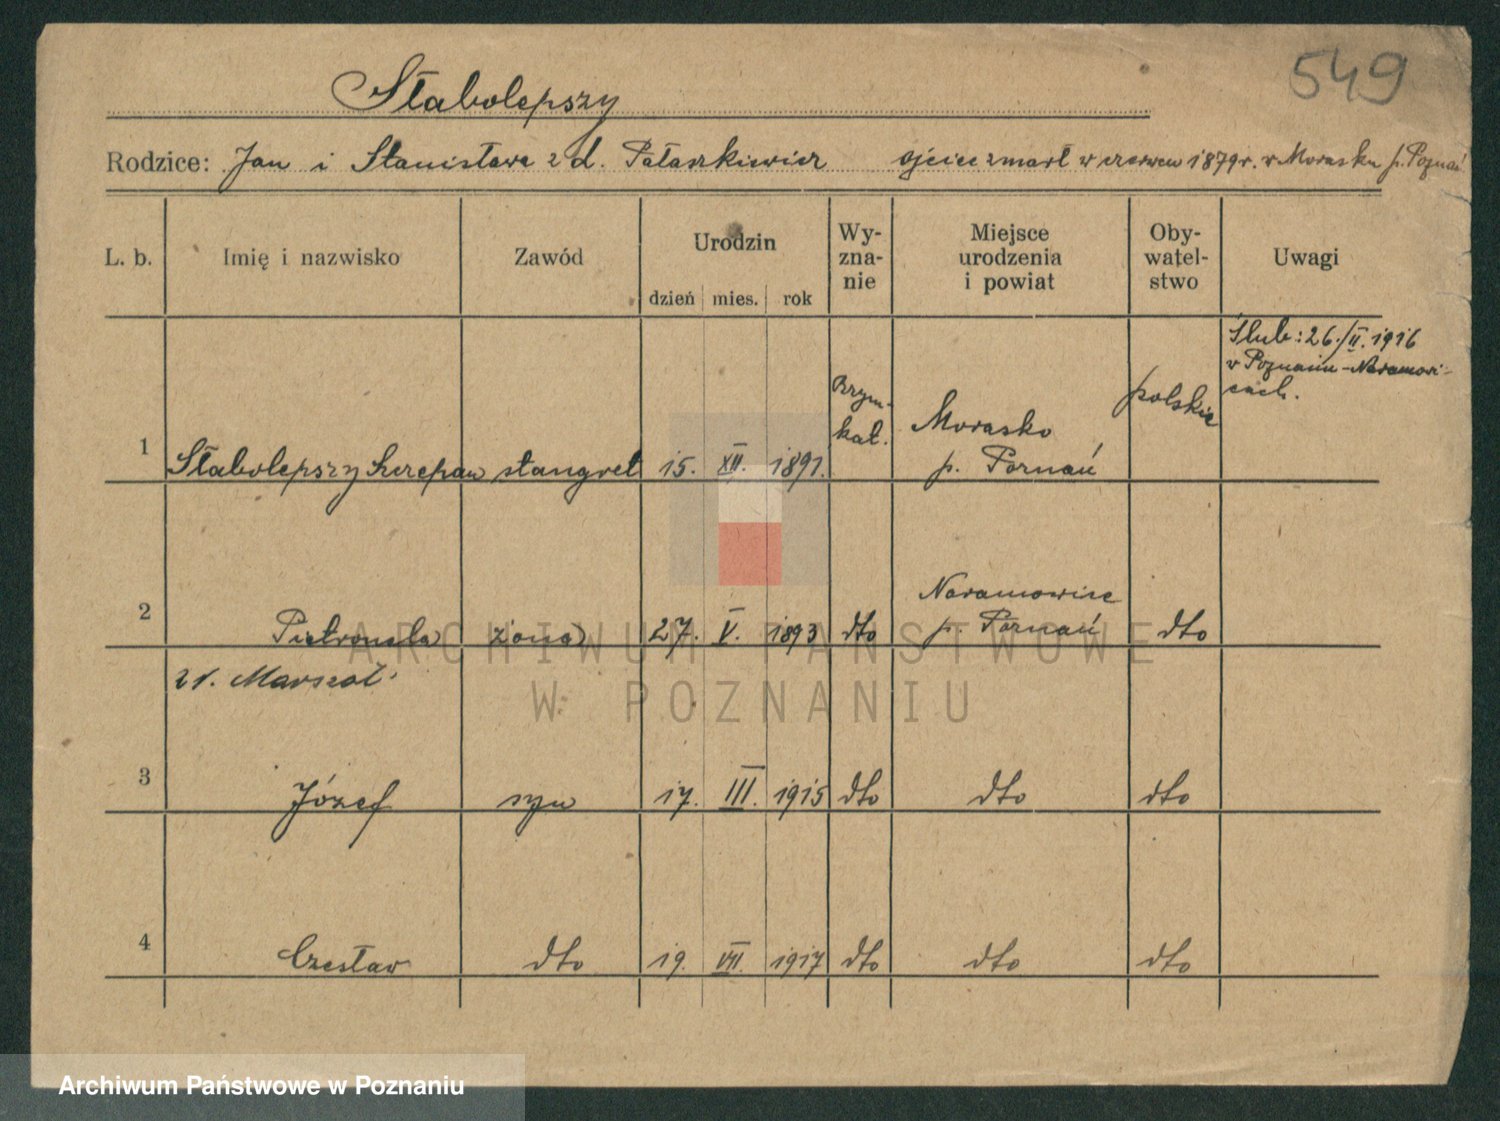 549
Słabolepszy
Rodzice: Jan i Stanisława z d. Pataszkiewicz ojciec zmarł w czerwcu 1879 r. w Morasku p. Poznań
L. b. Imię i nazwisko Zawód Urodzin dzień mies. rok Wy-zna-nie Miejsce urodzenia i powiat Oby-watel-stwo Uwagi
Ślub: 26./II. 1916
w Poznaniu-Naramowi-
cach.
1 Słabolepszy Szczepan stangret 15. XII. 1891. Rzym-kat. Morasko p. Poznań polskie
2 Pietronela żona 27. V. 1893 dto Naramowice p. Poznań dto
zd. Marszał
3 Józef syn 17. III. 1915 dto dto dto
4 Czesław dto 19. VII. 1917 dto dto dto
ARCHIWUM PAŃSTWOWE
W POZNANIU
Archiwum Państwowe w Poznaniu